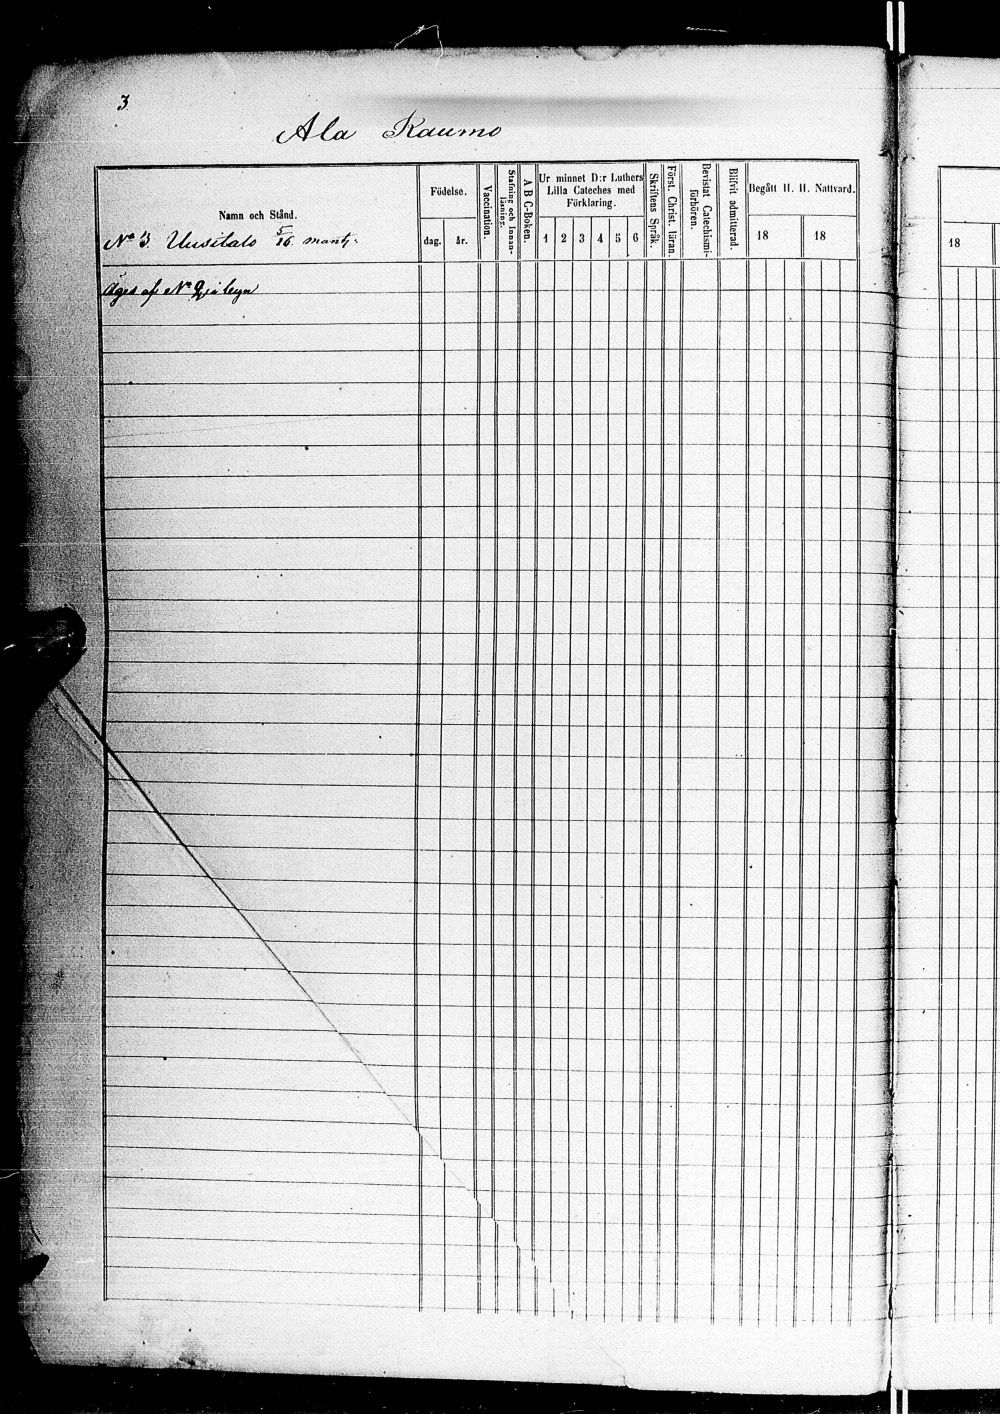 3
Ala Raumo
Namn och Stånd.
Födelse.
dag.
år.
Vaccination.
Stafning och Innan-
läsning.
A B C-Boken.
Ur minnet D:r Luthers
Lilla Cateches med
Förklaring.
1 2 3 4 5 6
Skriftens Språk.
Först. Christ. läran.
Bevistat Catechismi-
förhören.
Blifvit admitterad.
Begått H. H. Nattvard.
18 18
18
No 3 Uusitalo 5/16 mant:
Äges af No 2